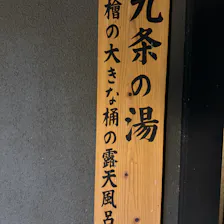 九条の湯
檜の大きな桶の露天風呂